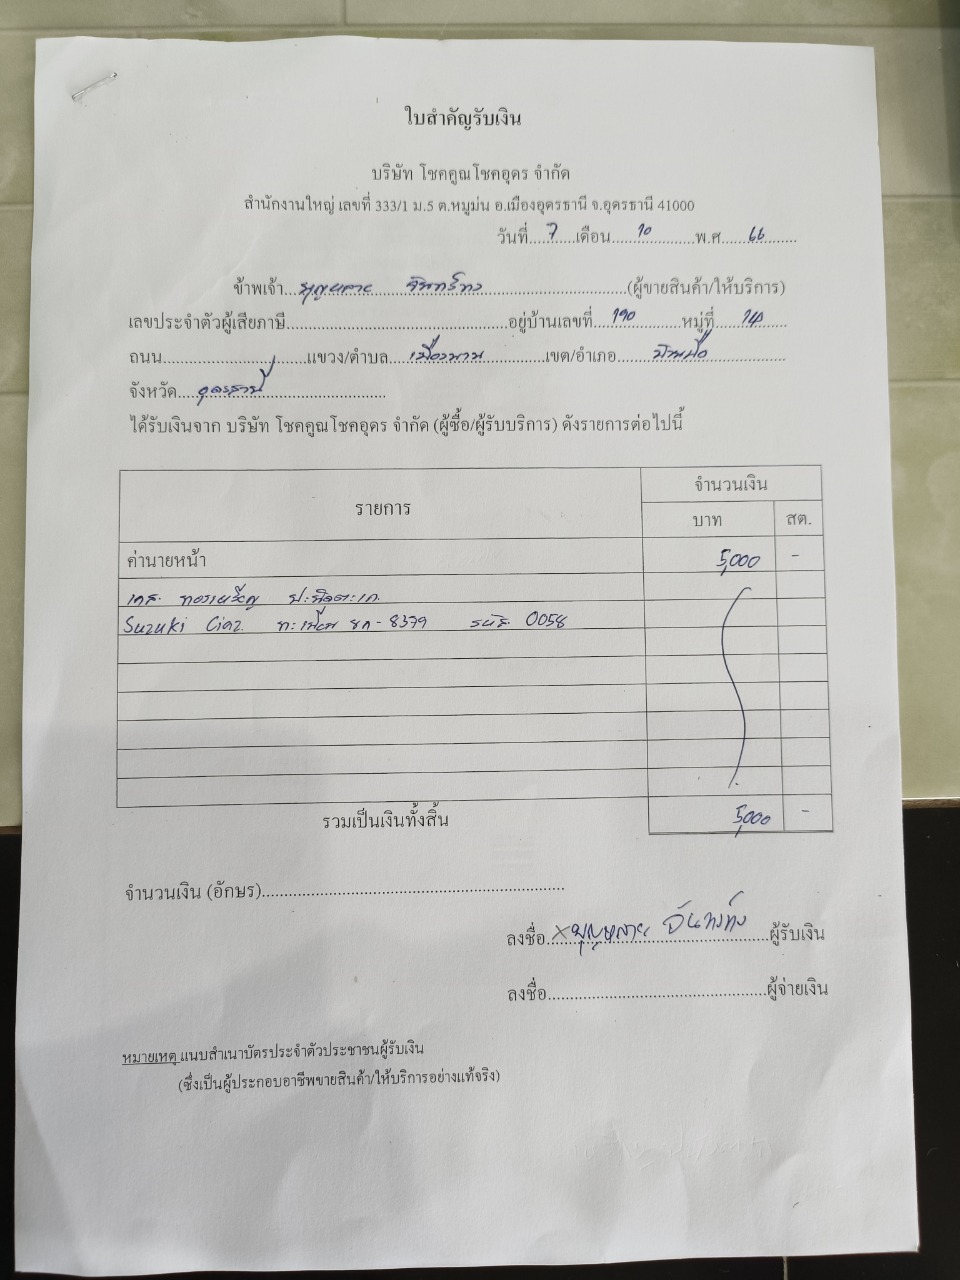 ใบสำคัญรับเงิน
บริษัท โชคคูณโชคอุดร จำกัด
สำนักงานใหญ่ เลขที่ 333/1 ม.5 ต.หมูม่น อ.เมืองอุดรธานี จ.อุดรธานี 41000
วันที่ 7 เดือน 10 พ.ศ. 66
ข้าพเจ้า บุญหลาย จันทร์ทง (ผู้ขายสินค้า/ให้บริการ)
เลขประจำตัวผู้เสียภาษี อยู่บ้านเลขที่ 190 หมู่ที่ 14
ถนน แขวง/ตำบล เมืองพาน เขต/อำเภอ บ้านผือ
จังหวัด อุดรธานี
ได้รับเงินจาก บริษัท โชคคูณโชคอุดร จำกัด (ผู้ซื้อ/ผู้รับบริการ) ดังรายการต่อไปนี้
รายการ จำนวนเงิน
บาท สต.
ค่านายหน้า 5,000 -
เคส ทองเจริญ
Suzuki Ciaz ทะเบียน ขก-8379 รหัส 0058
รวมเป็นเงินทั้งสิ้น 5,000 -
จำนวนเงิน (อักษร)
ลงชื่อ x บุญหลาย จันทร์ทง ผู้รับเงิน
ลงชื่อ ผู้จ่ายเงิน
หมายเหตุ แนบสำเนาบัตรประจำตัวประชาชนผู้รับเงิน
(ซึ่งเป็นผู้ประกอบอาชีพขายสินค้า/ให้บริการอย่างแท้จริง)